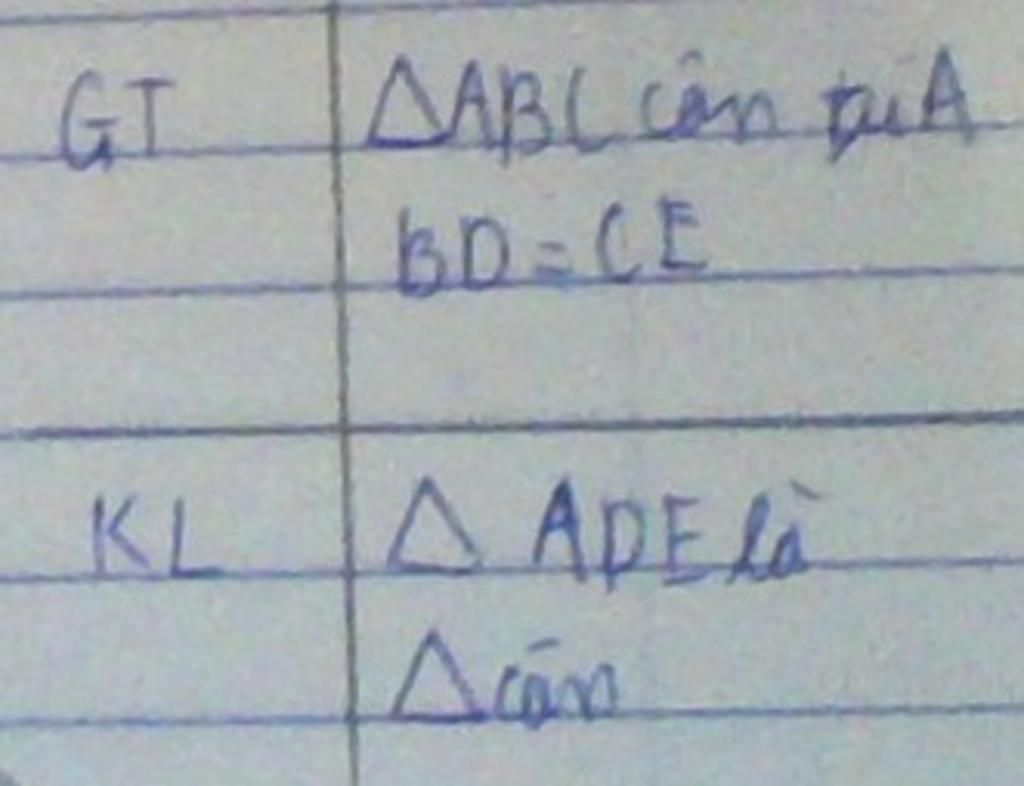 GT ΔABC cân tại A
BD = CE
KL Δ ADE là
Δ cân